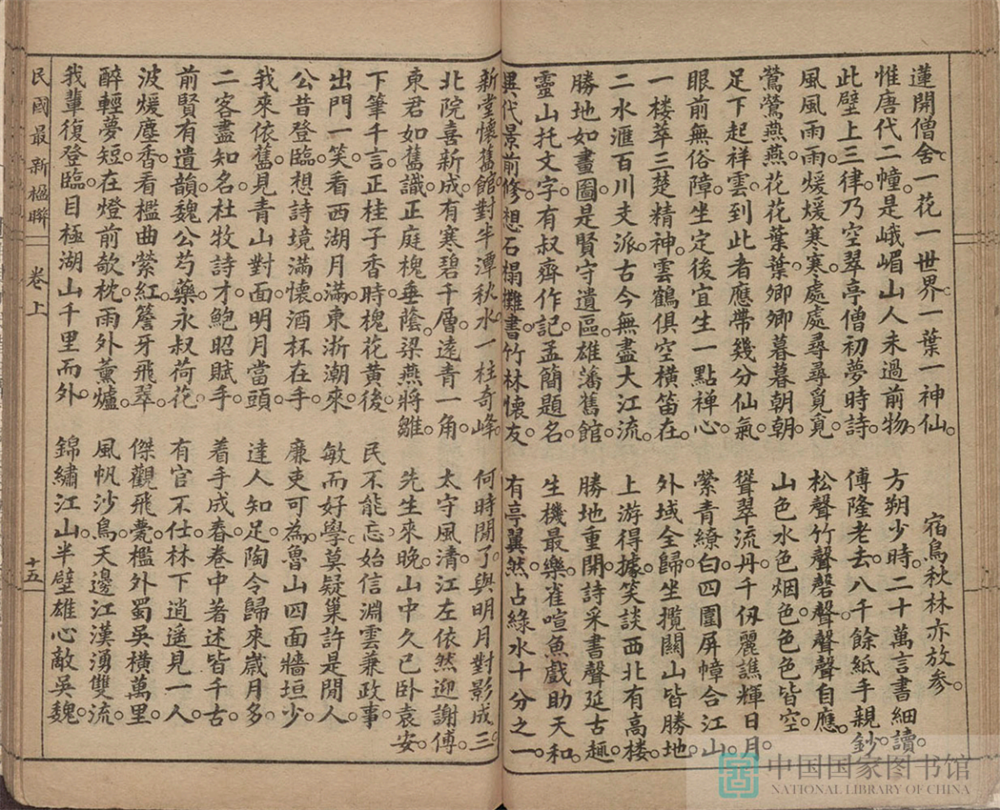 蓮開僧舍。一花一世界。一葉一神仙。
惟唐代二幢。是峨嵋山人未過前物。
此壁上三律。乃空翠亭僧初夢時詩。
風風雨雨。煖煖寒寒。處處尋尋覓覓。
鶯鶯燕燕。花花葉葉。卿卿暮暮朝朝。
足下起祥雲。到此者應帶幾分仙氣。
眼前無俗障。坐定後宜生一點禅心。
一樓萃三楚精神。雲鶴俱空橫笛在。
二水滙百川支派。古今無盡大江流。
勝地如畫圖。是賢守遺區。雄藩舊館。
靈山托文字。有叔齊作記。孟簡題名。
異代景前修。想石榻攤書。竹林懷友。
新堂懷舊館。對半潭秋水。一柱奇峰。
北院喜新成。有寒碧千層。遠青一角。
東君如舊識。正庭槐垂蔭。梁燕將雛。
下筆千言。正桂子香時。槐花黃後。
出門一笑。看西湖月滿。東浙潮來。
公昔登臨。想詩境滿懷。酒杯在手。
我來依舊。見青山對面。明月當頭。
二客盡知名。杜牧詩才。鮑昭賦手。
前賢有遺韻。魏公芍藥。永叔荷花。
波煖塵香。看檻曲縈紅。簷牙飛翠。
醉輕夢短。在燈前欹枕。雨外薰爐。
我輩復登臨。目極湖山千里而外。
宿鳥秋林亦放參。
方朔少時。二十萬言書細讀。
傅隆老去。八千餘紙手親鈔。
松聲竹聲磬聲。聲聲自應。
山色水色烟色。色色皆空。
聳翠流丹。千仭麗譙輝日月。
縈青繚白。四圍屏幛合江山。
外域全歸。坐攬關山皆勝地。
上游得據。笑談西北有高樓。
勝地重開。詩采書聲延古趣。
生機最樂。雀喧魚戲助天和。
有亭翼然。占綠水十分之一。
何時閒了。與明月對影成三。
太守風清。江左依然迎謝傅。
先生來晚。山中久已卧袁安。
民不能忘。始信淵雲兼政事。
敏而好學。莫疑巢許是閒人。
廉吏可為。魯山四面牆垣少。
達人知足。陶令歸來歲月多。
着手成春。卷中著述皆千古。
有官不仕。林下逍遙見一人。
傑觀飛甍。檻外蜀吳橫萬里。
風帆沙鳥。天邊江漢湧雙流。
錦繡江山。半壁雄心敵吳魏。
民國最新楹聯 卷上 十五
中国国家图书馆
NATIONAL LIBRARY OF CHINA